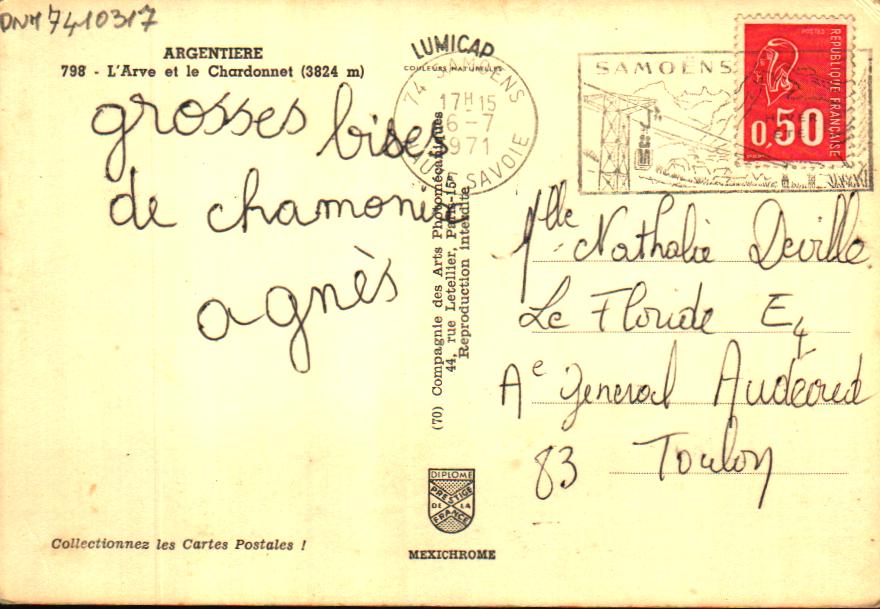 DNM 7410317
ARGENTIERE
798 - L'Arve et le Chardonnet (3824 m)
LUMICAP
COULEURS NATURELLES
grosses bises
de chamonix
agnès
74 SAMOËNS
17H15
6-7
1971
HAUTE SAVOIE
SAMOËNS
POSTES
REPUBLIQUE FRANÇAISE
0,50
(70) Compagnie des Arts Photomécaniques
44, rue Letellier, Paris-15e
Reproduction interdite
Mlle Nathalie Deville
Le Floride E4
Ae General Audéoud
83 Toulon
DIPLOME
PRESTIGE
DE LA
FRANCE
MEXICHROME
Collectionnez les Cartes Postales !